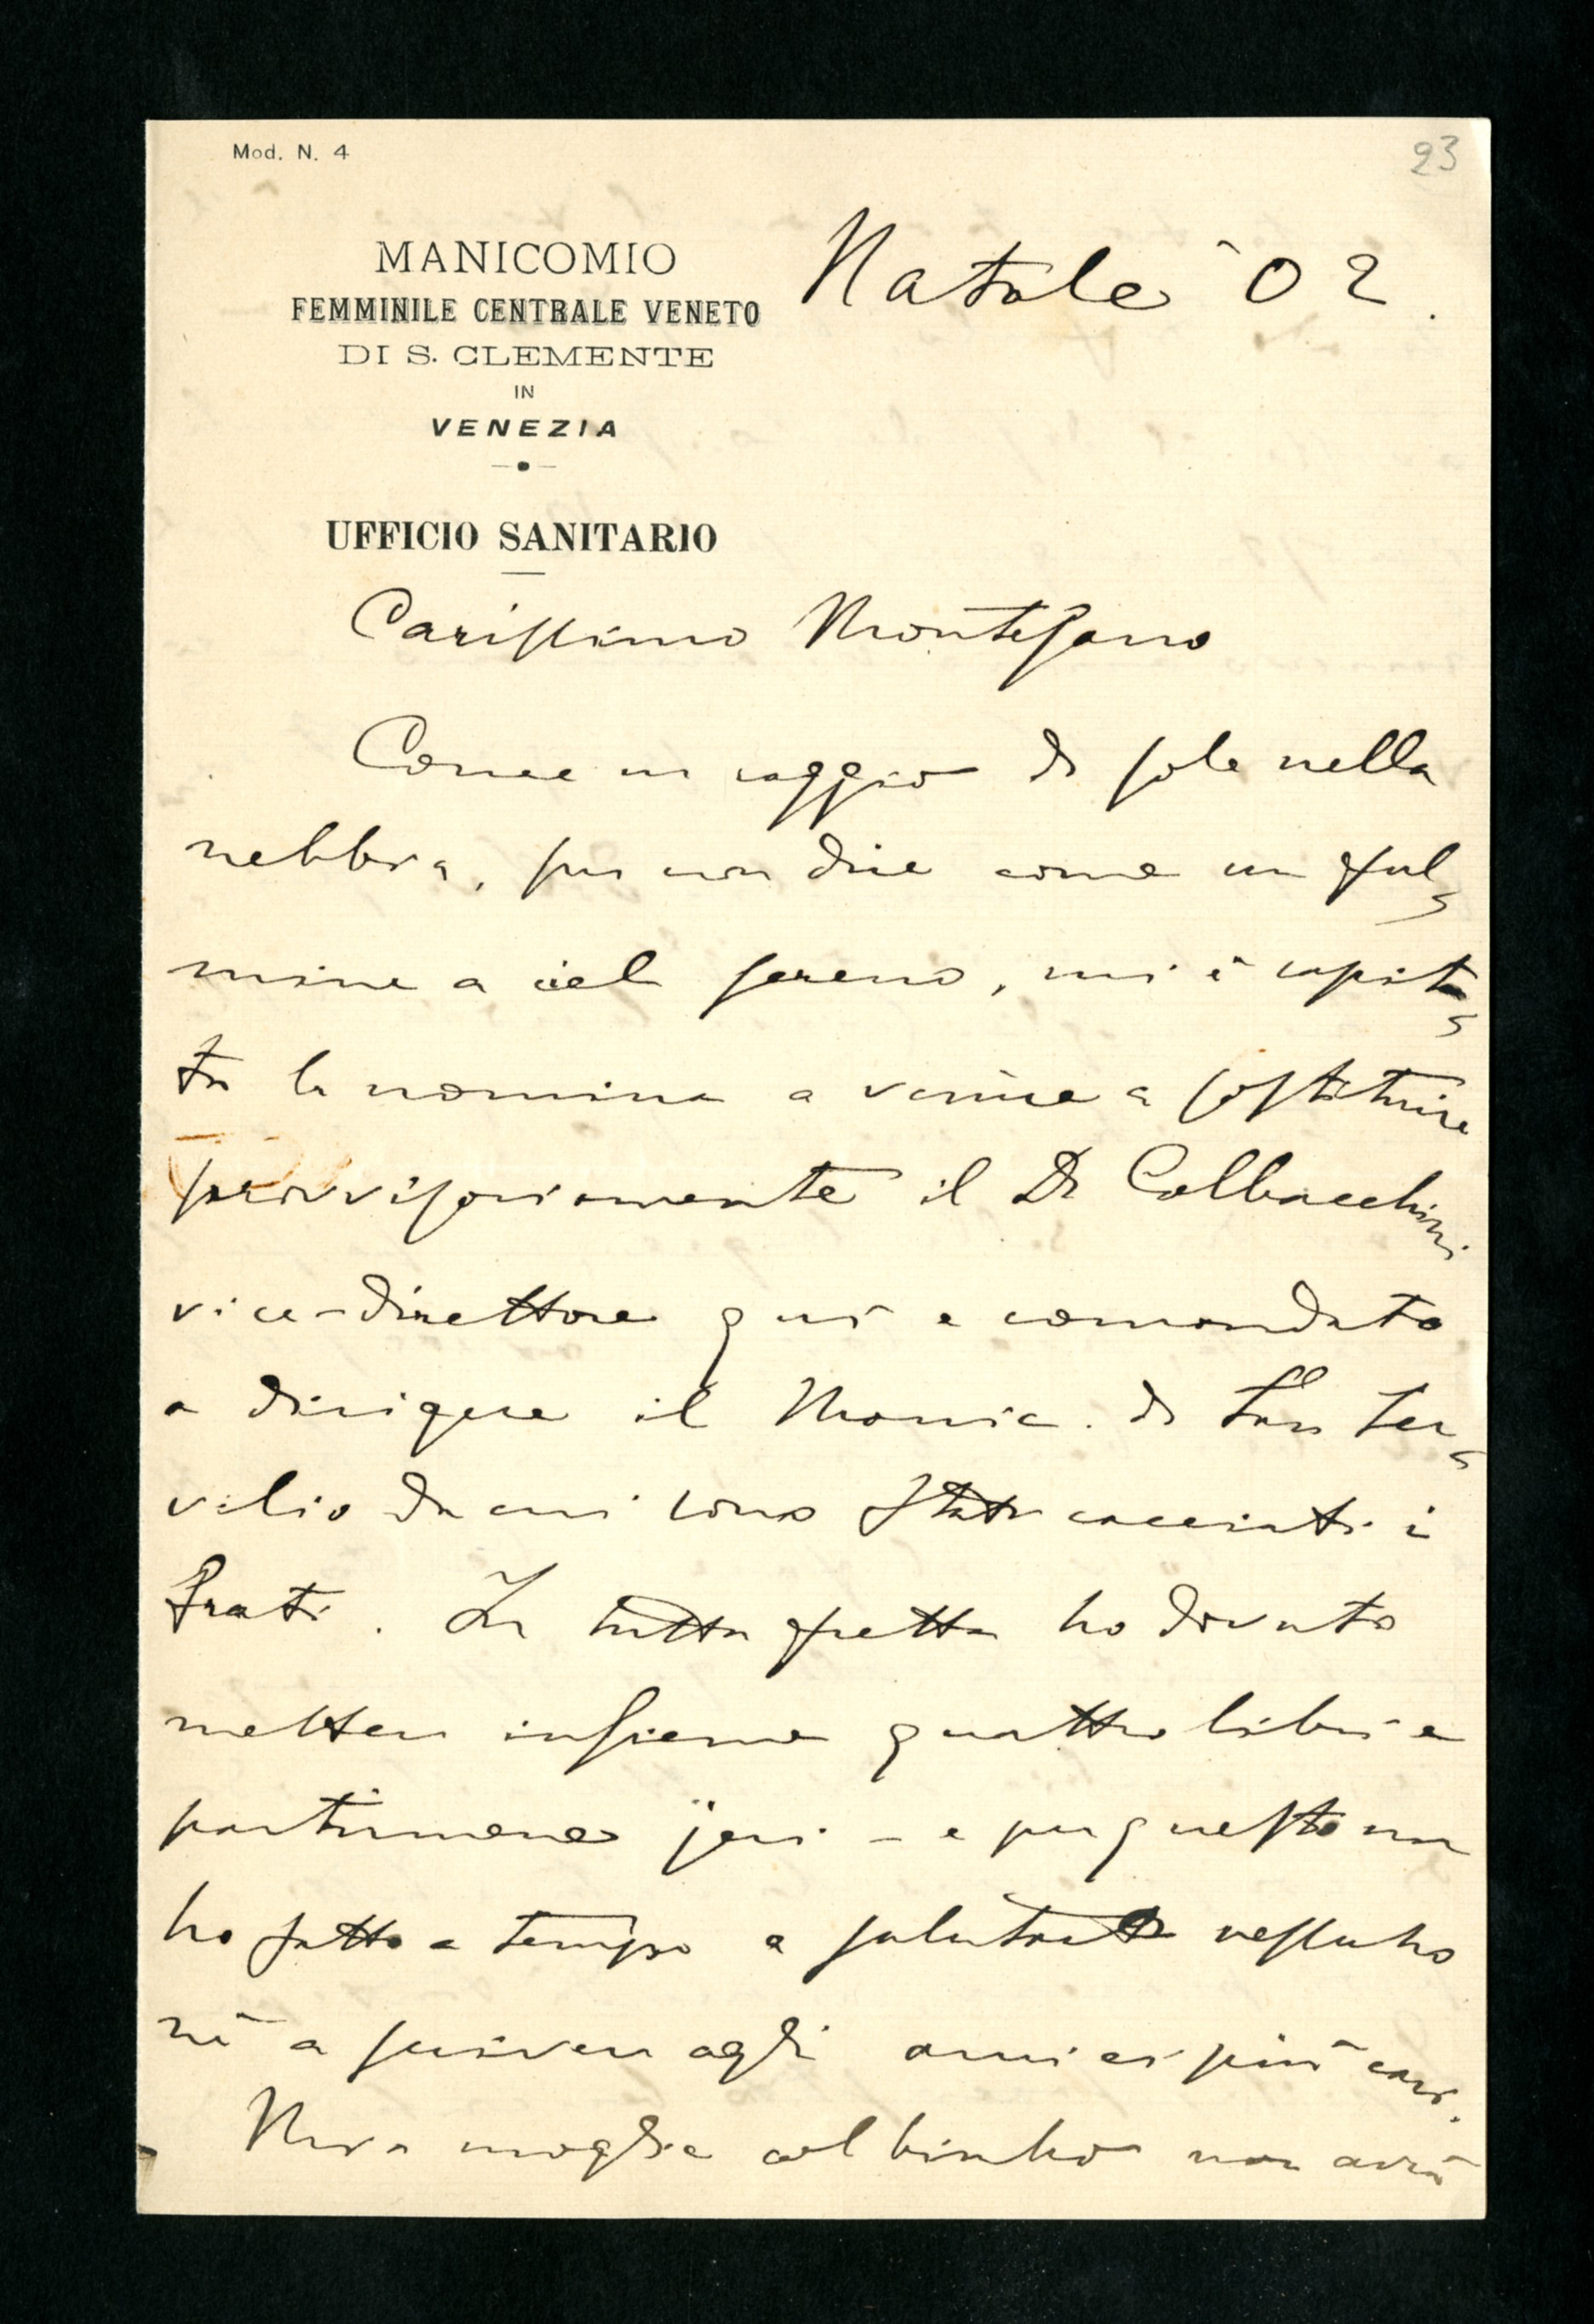 Mod. N. 4
23
MANICOMIO
FEMMINILE CENTRALE VENETO
DI S. CLEMENTE
IN
VENEZIA
UFFICIO SANITARIO
Natale '02.
Carissimo Montesano
Come un raggio di sole nella
nebbia, per non dire come un ful-
mine a ciel sereno, mi è capita-
ta la nomina a venire a sostituire
provvisoriamente il Dr Colbacchini
vice-direttore qui e comandato
a dirigere il Manic. di San Ser-
vilio da cui sono stati cacciati i
frati. In tutta fretta ho dovuto
metter insieme quattro libri e
partirmene jeri - e per questo non
ho fatto a tempo a salutare nessuno
nè a scriver agli amici più cari.
Mia moglie col bimbo non avrà